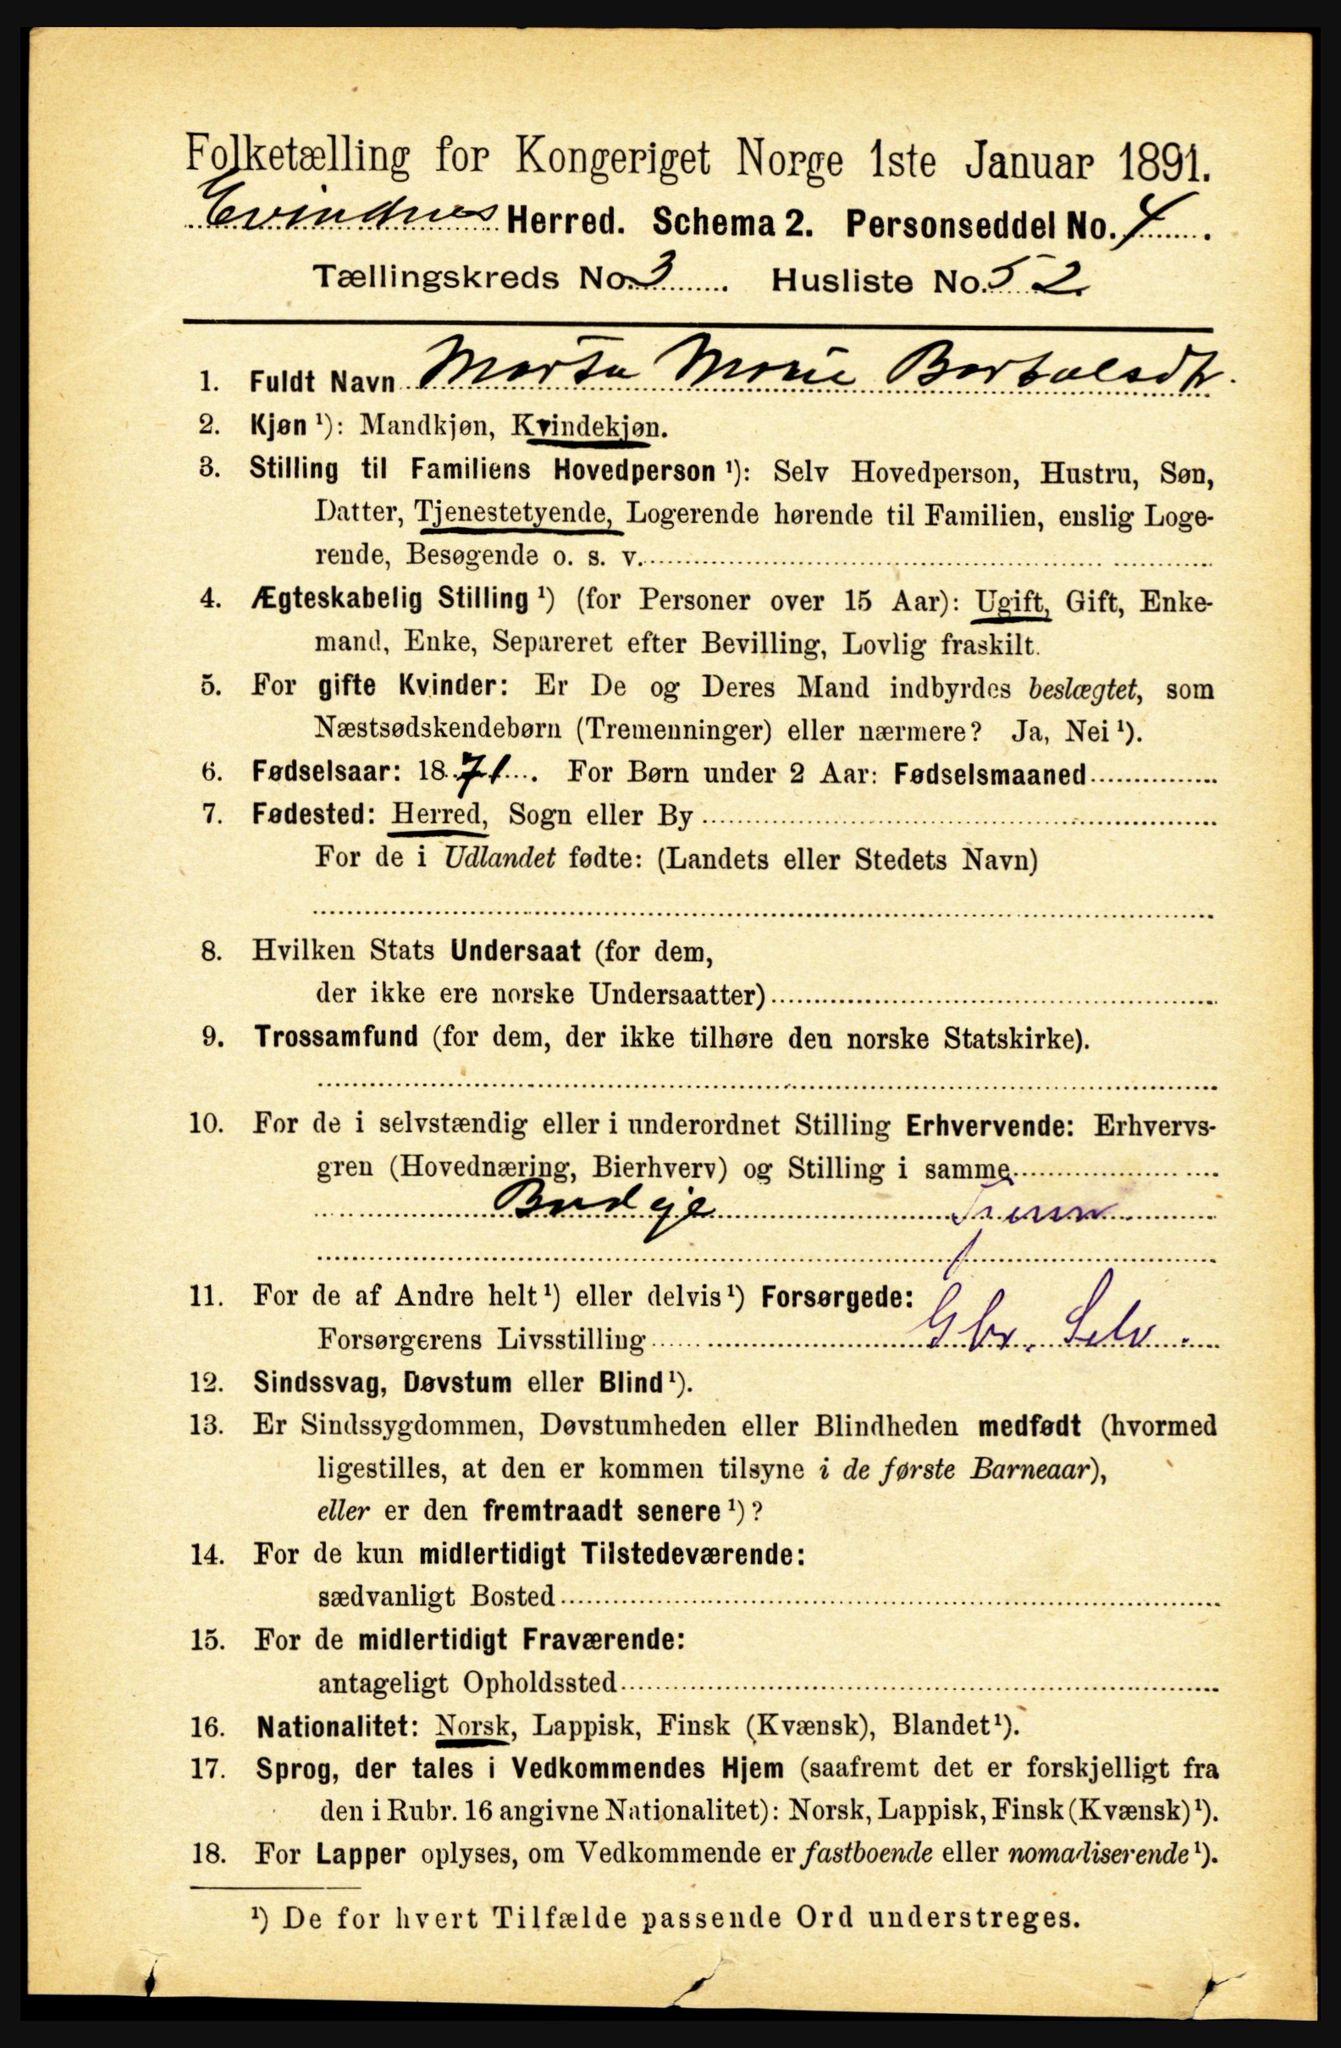 Folketælling for Kongeriget Norge 1ste Januar 1891.
Evindnes Herred. Schema 2. Personseddel No. 4.
Tællingskreds No. 3. Husliste No. 52.
1. Fuldt Navn Marta Marie Bertalsdtr.
2. Kjøn ¹): Mandkjøn, Kvindekjøn.
3. Stilling til Familiens Hovedperson ¹): Selv Hovedperson, Hustru, Søn,
Datter, Tjenestetyende, Logerende hørende til Familien, enslig Loge-
rende, Besøgende o. s. v.
4. Ægteskabelig Stilling ¹) (for Personer over 15 Aar): Ugift, Gift, Enke-
mand, Enke, Separeret efter Bevilling, Lovlig fraskilt.
5. For gifte Kvinder: Er De og Deres Mand indbyrdes beslægtet, som
Næstsødskendebørn (Tremenninger) eller nærmere? Ja, Nei ¹).
6. Fødselsaar: 1871. For Børn under 2 Aar: Fødselsmaaned
7. Fødested: Herred, Sogn eller By
For de i Udlandet fødte: (Landets eller Stedets Navn)
8. Hvilken Stats Undersaat (for dem,
der ikke ere norske Undersaatter)
9. Trossamfund (for dem, der ikke tilhøre den norske Statskirke).
10. For de i selvstændig eller i underordnet Stilling Erhvervende: Erhvervs-
gren (Hovednæring, Bierhverv) og Stilling i samme
Budeje
11. For de af Andre helt ¹) eller delvis ¹) Forsørgede:
Forsørgerens Livsstilling Gbr. Selv.
12. Sindssvag, Døvstum eller Blind ¹).
13. Er Sindssygdommen, Døvstumheden eller Blindheden medfødt (hvormed
ligestilles, at den er kommen tilsyne i de første Barneaar),
eller er den fremtraadt senere ¹)?
14. For de kun midlertidigt Tilstedeværende:
sædvanligt Bosted
15. For de midlertidigt Fraværende:
antageligt Opholdssted
16. Nationalitet: Norsk, Lappisk, Finsk (Kvænsk), Blandet ¹).
17. Sprog, der tales i Vedkommendes Hjem (saafremt det er forskjelligt fra
den i Rubr. 16 angivne Nationalitet): Norsk, Lappisk, Finsk (Kvænsk) ¹).
18. For Lapper oplyses, om Vedkommende er fastboende eller nomadiserende ¹).
¹) De for hvert Tilfælde passende Ord understreges.